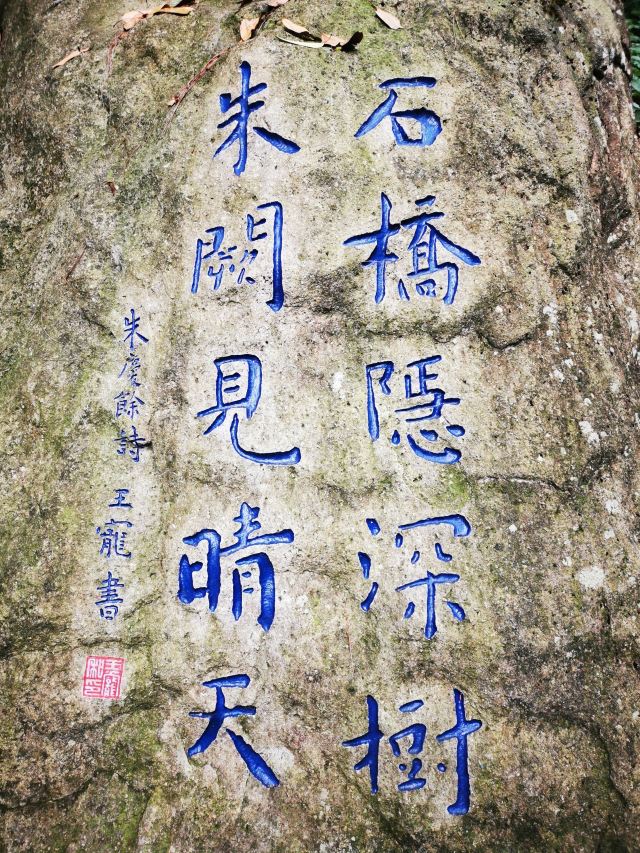 石橋隱深樹
朱闕見晴天
朱慶餘詩 王寵書